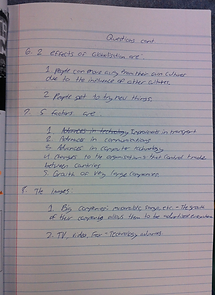 Questions cont
6. 2 effects of Globalisation are:
1. People can move away from their own cultures
due to the influence of other cultures
2. People get to try new things.
7. 5 factors are
1. Advances in technology Improvements in transport
2. Advances in communications
3. Advances in computer technology
4. Changes to the organisations that control trade
between countries
5. Growth of very large companies
8. The images
1. Big companies: McDonalds, Target, etc. - The growth
of their companies allows them to be
2. TV, video, - Technology advances